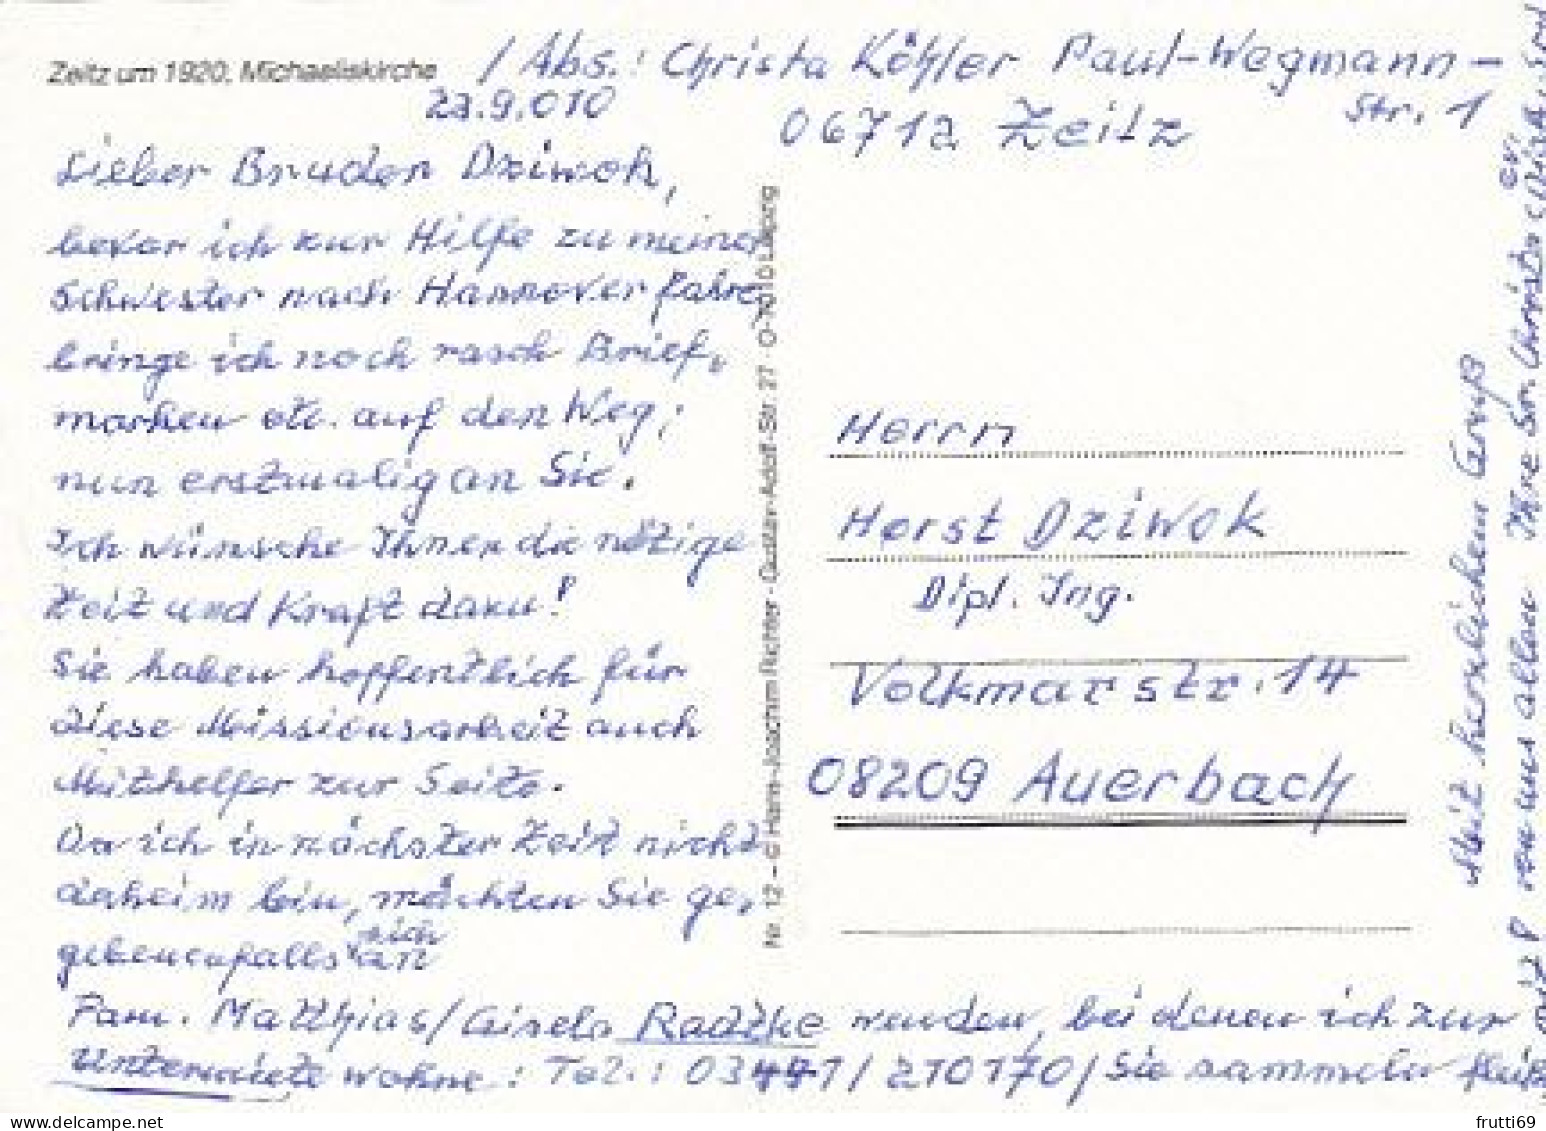 Zeitz um 1920, Michaeliskirche
/ Abs.: Christa Köhler Paul-Wegmann-
Str. 1
23.9.010
06712 Zeitz
Lieber Bruder Dziwok,
bevor ich zur Hilfe zu meiner
Schwester nach Hannover fahre,
bringe ich noch rasch Brief-
marken etc. auf den Weg;
nun erstmalig an Sie.
Ich wünsche Ihnen die nötige
Zeit und Kraft dazu!
Sie haben hoffentlich für
diese Missionsarbeit auch
Mithelfer zur Seite.
Da ich in nächster Zeit nicht
daheim bin, möchten Sie ge-
gebenenfalls sich an
Fam. Matthias/Gisela Radtke wenden, bei denen ich zur
Untermiete wohne: Tel.: 03441/210170/ Sie sammeln fleißig
mit!
Mit herzlichem Gruß
von uns allen Ihre Sr. Christa
Nr. 12 – © Hans-Joachim Richter · Gustav-Adolf-Str. 27 · O-7010 Leipzig
Herrn
Horst Dziwok
Dipl. Ing.
Volkmarstr. 14
08209 Auerbach
frutti69